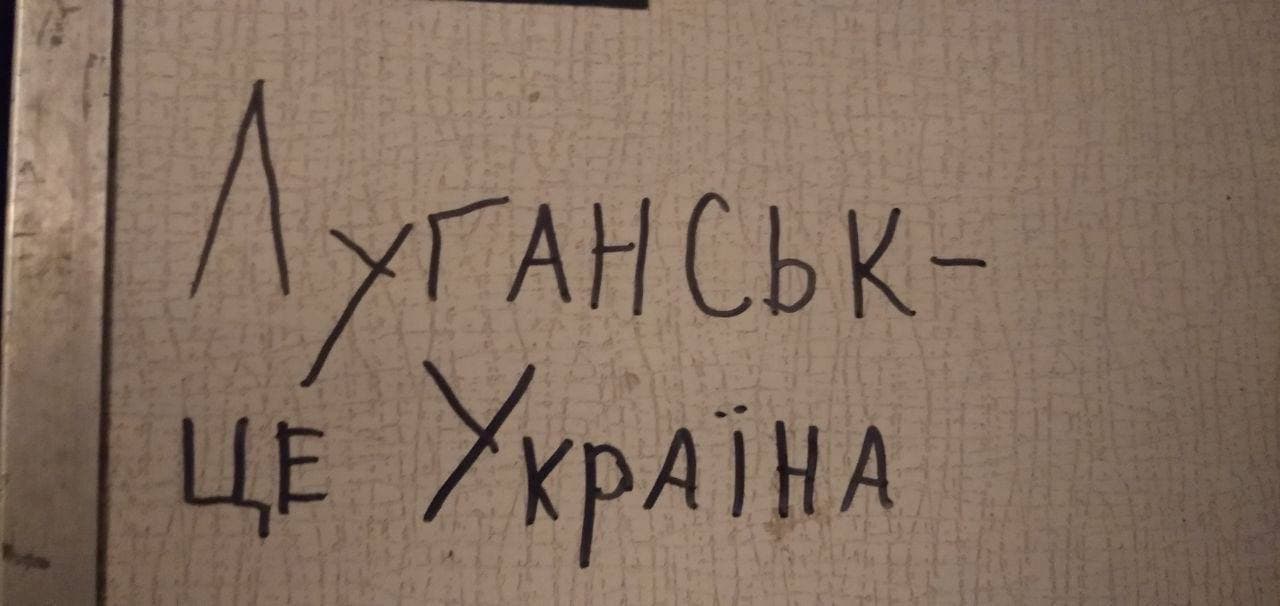 Луганськ-
це Україна